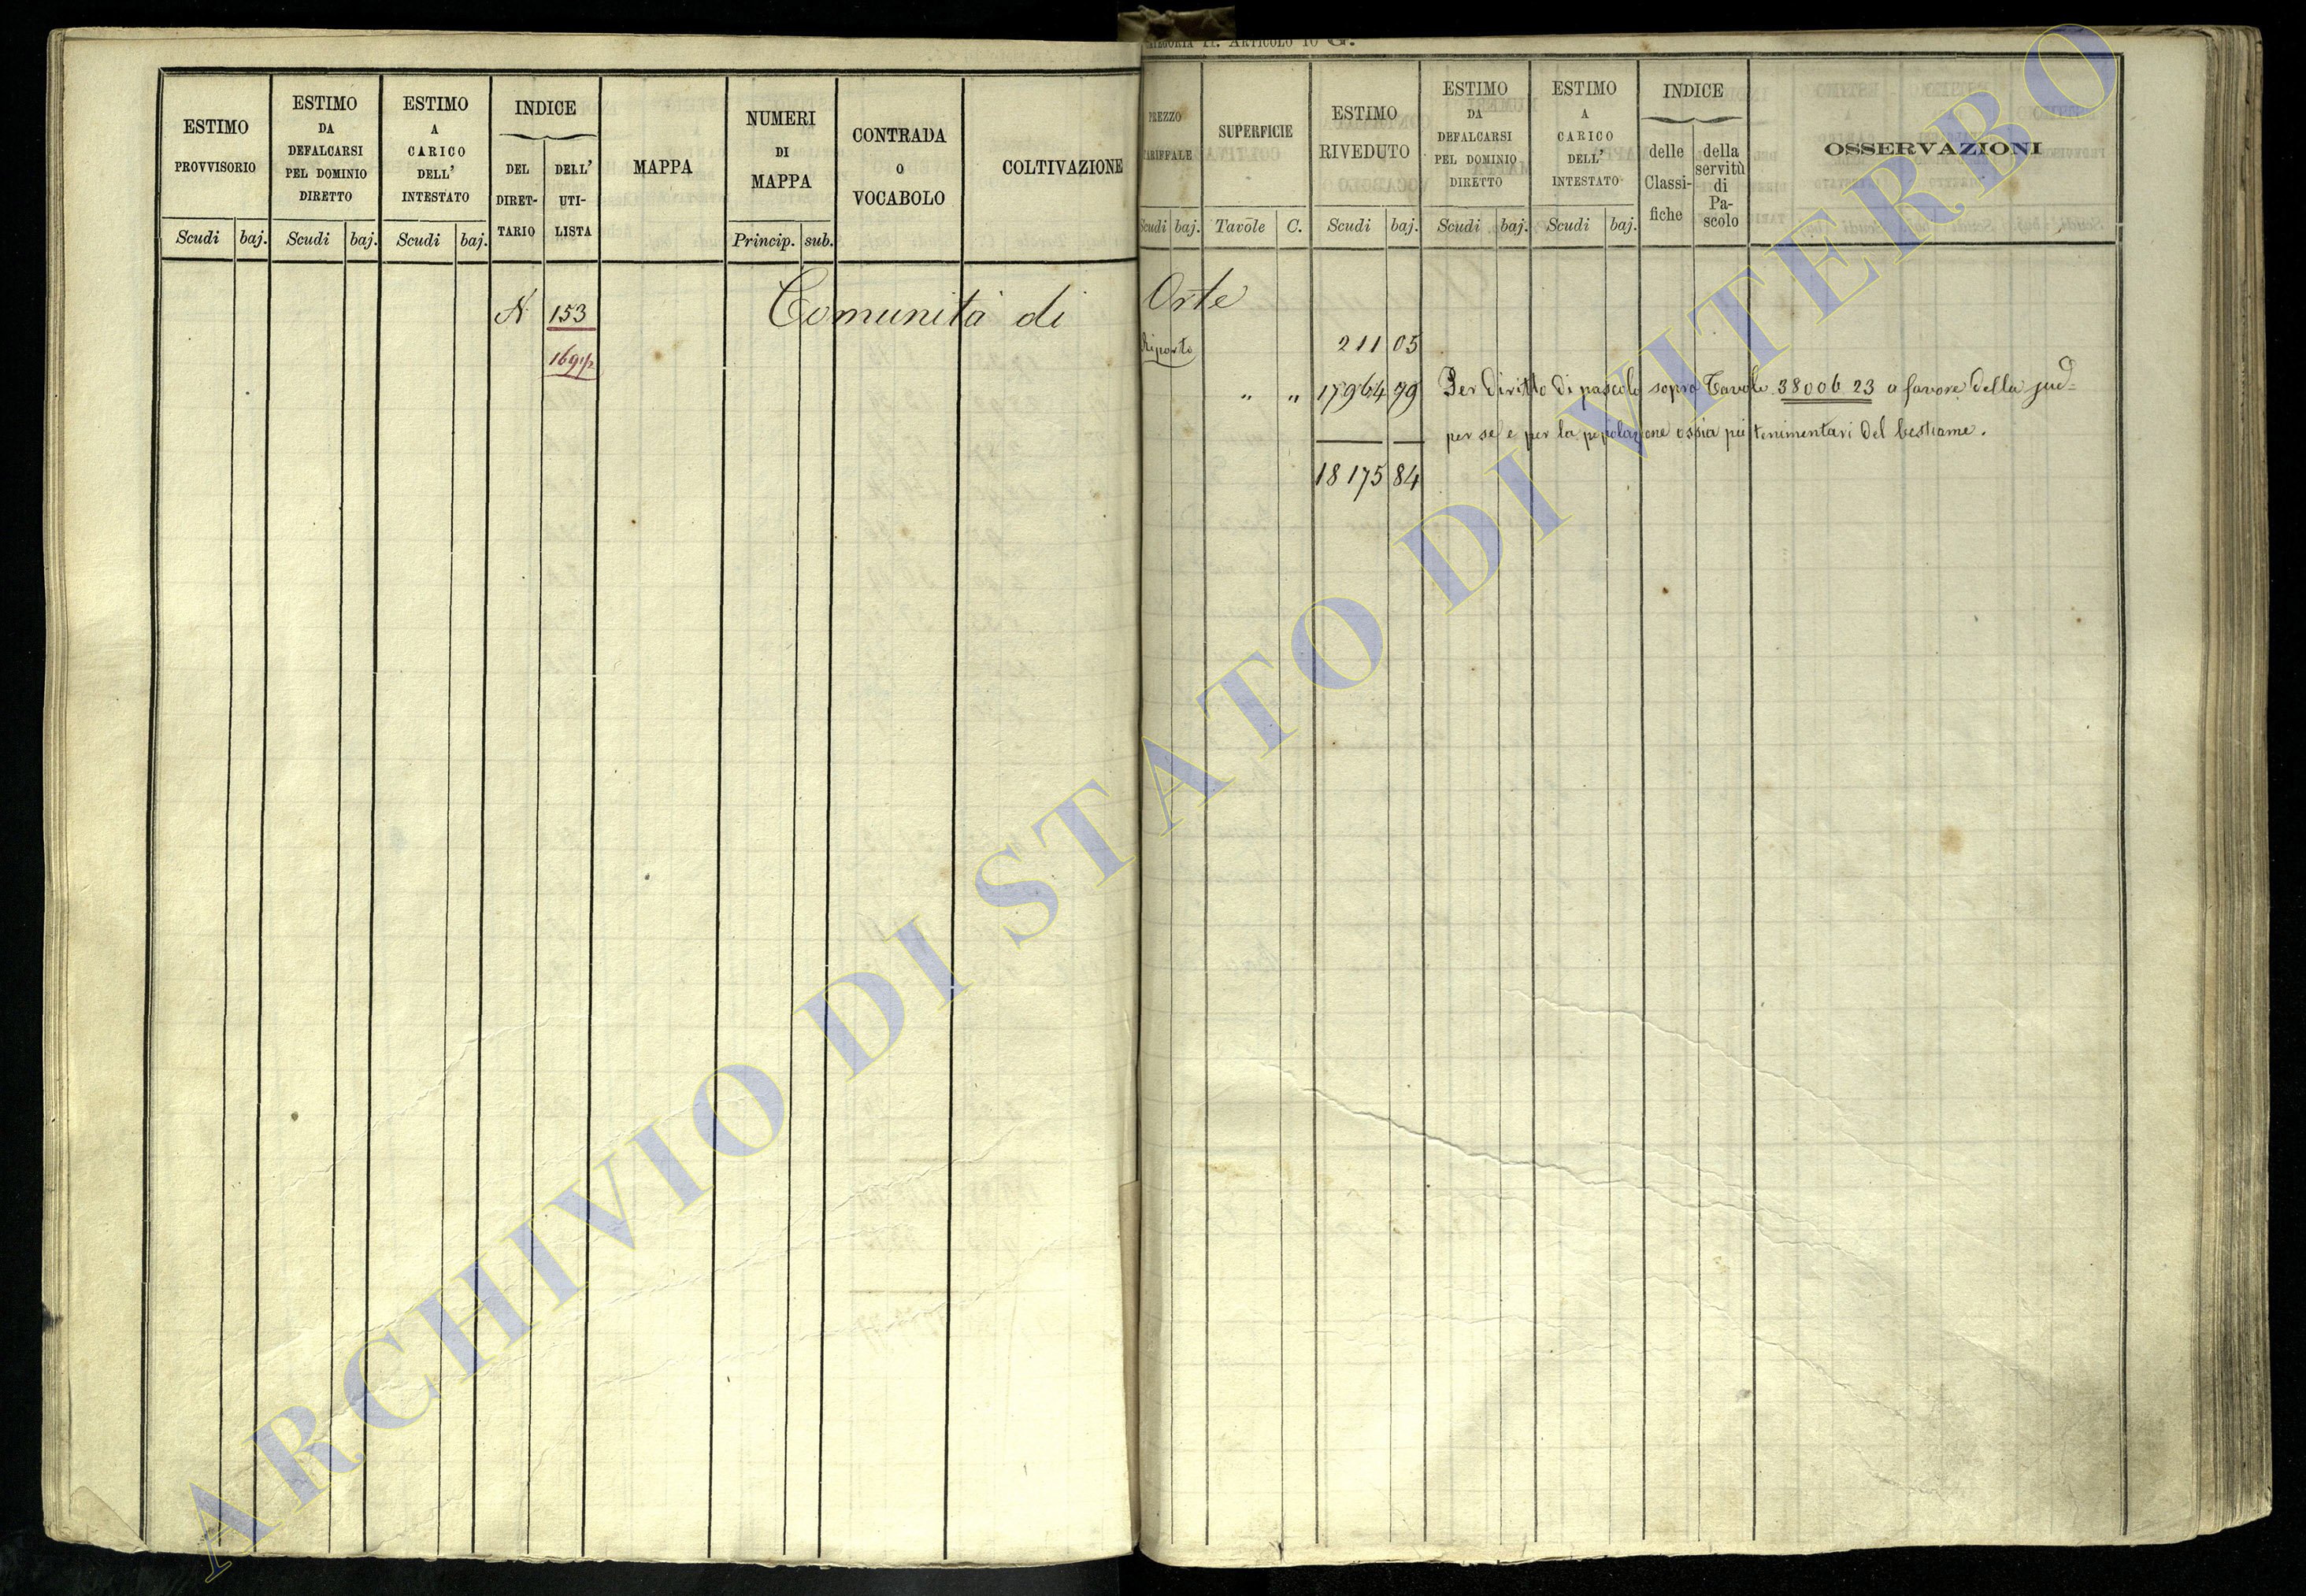 CATEGORIA II. ARTICOLO 10 G.
ESTIMO PROVVISORIO
Scudi baj.
ESTIMO DA DEFALCARSI PEL DOMINIO DIRETTO
Scudi baj.
ESTIMO A CARICO DELL' INTESTATO
Scudi baj.
INDICE
DEL DIRET-TARIO
DELL' UTI-LISTA
MAPPA
NUMERI DI MAPPA
Princip. sub.
CONTRADA O VOCABOLO
COLTIVAZIONE
PREZZO TARIFFALE
Scudi baj.
SUPERFICIE
Tavole C.
ESTIMO RIVEDUTO
Scudi baj.
ESTIMO DA DEFALCARSI PEL DOMINIO DIRETTO
Scudi baj.
ESTIMO A CARICO DELL' INTESTATO
Scudi baj.
INDICE
delle Classi-fiche
della servitù di Pa-scolo
OSSERVAZIONI
N 153 Comunità di Orte
169 1/2 Riporto 211 05
" " 17964 79 Per diritto di pascolo sopra Tavole 38006 23 a favore della sud=
per se e per la popolazione ossia pei tenimentari del bestiame.
18175 84
ARCHIVIO DI STATO DI VITERBO